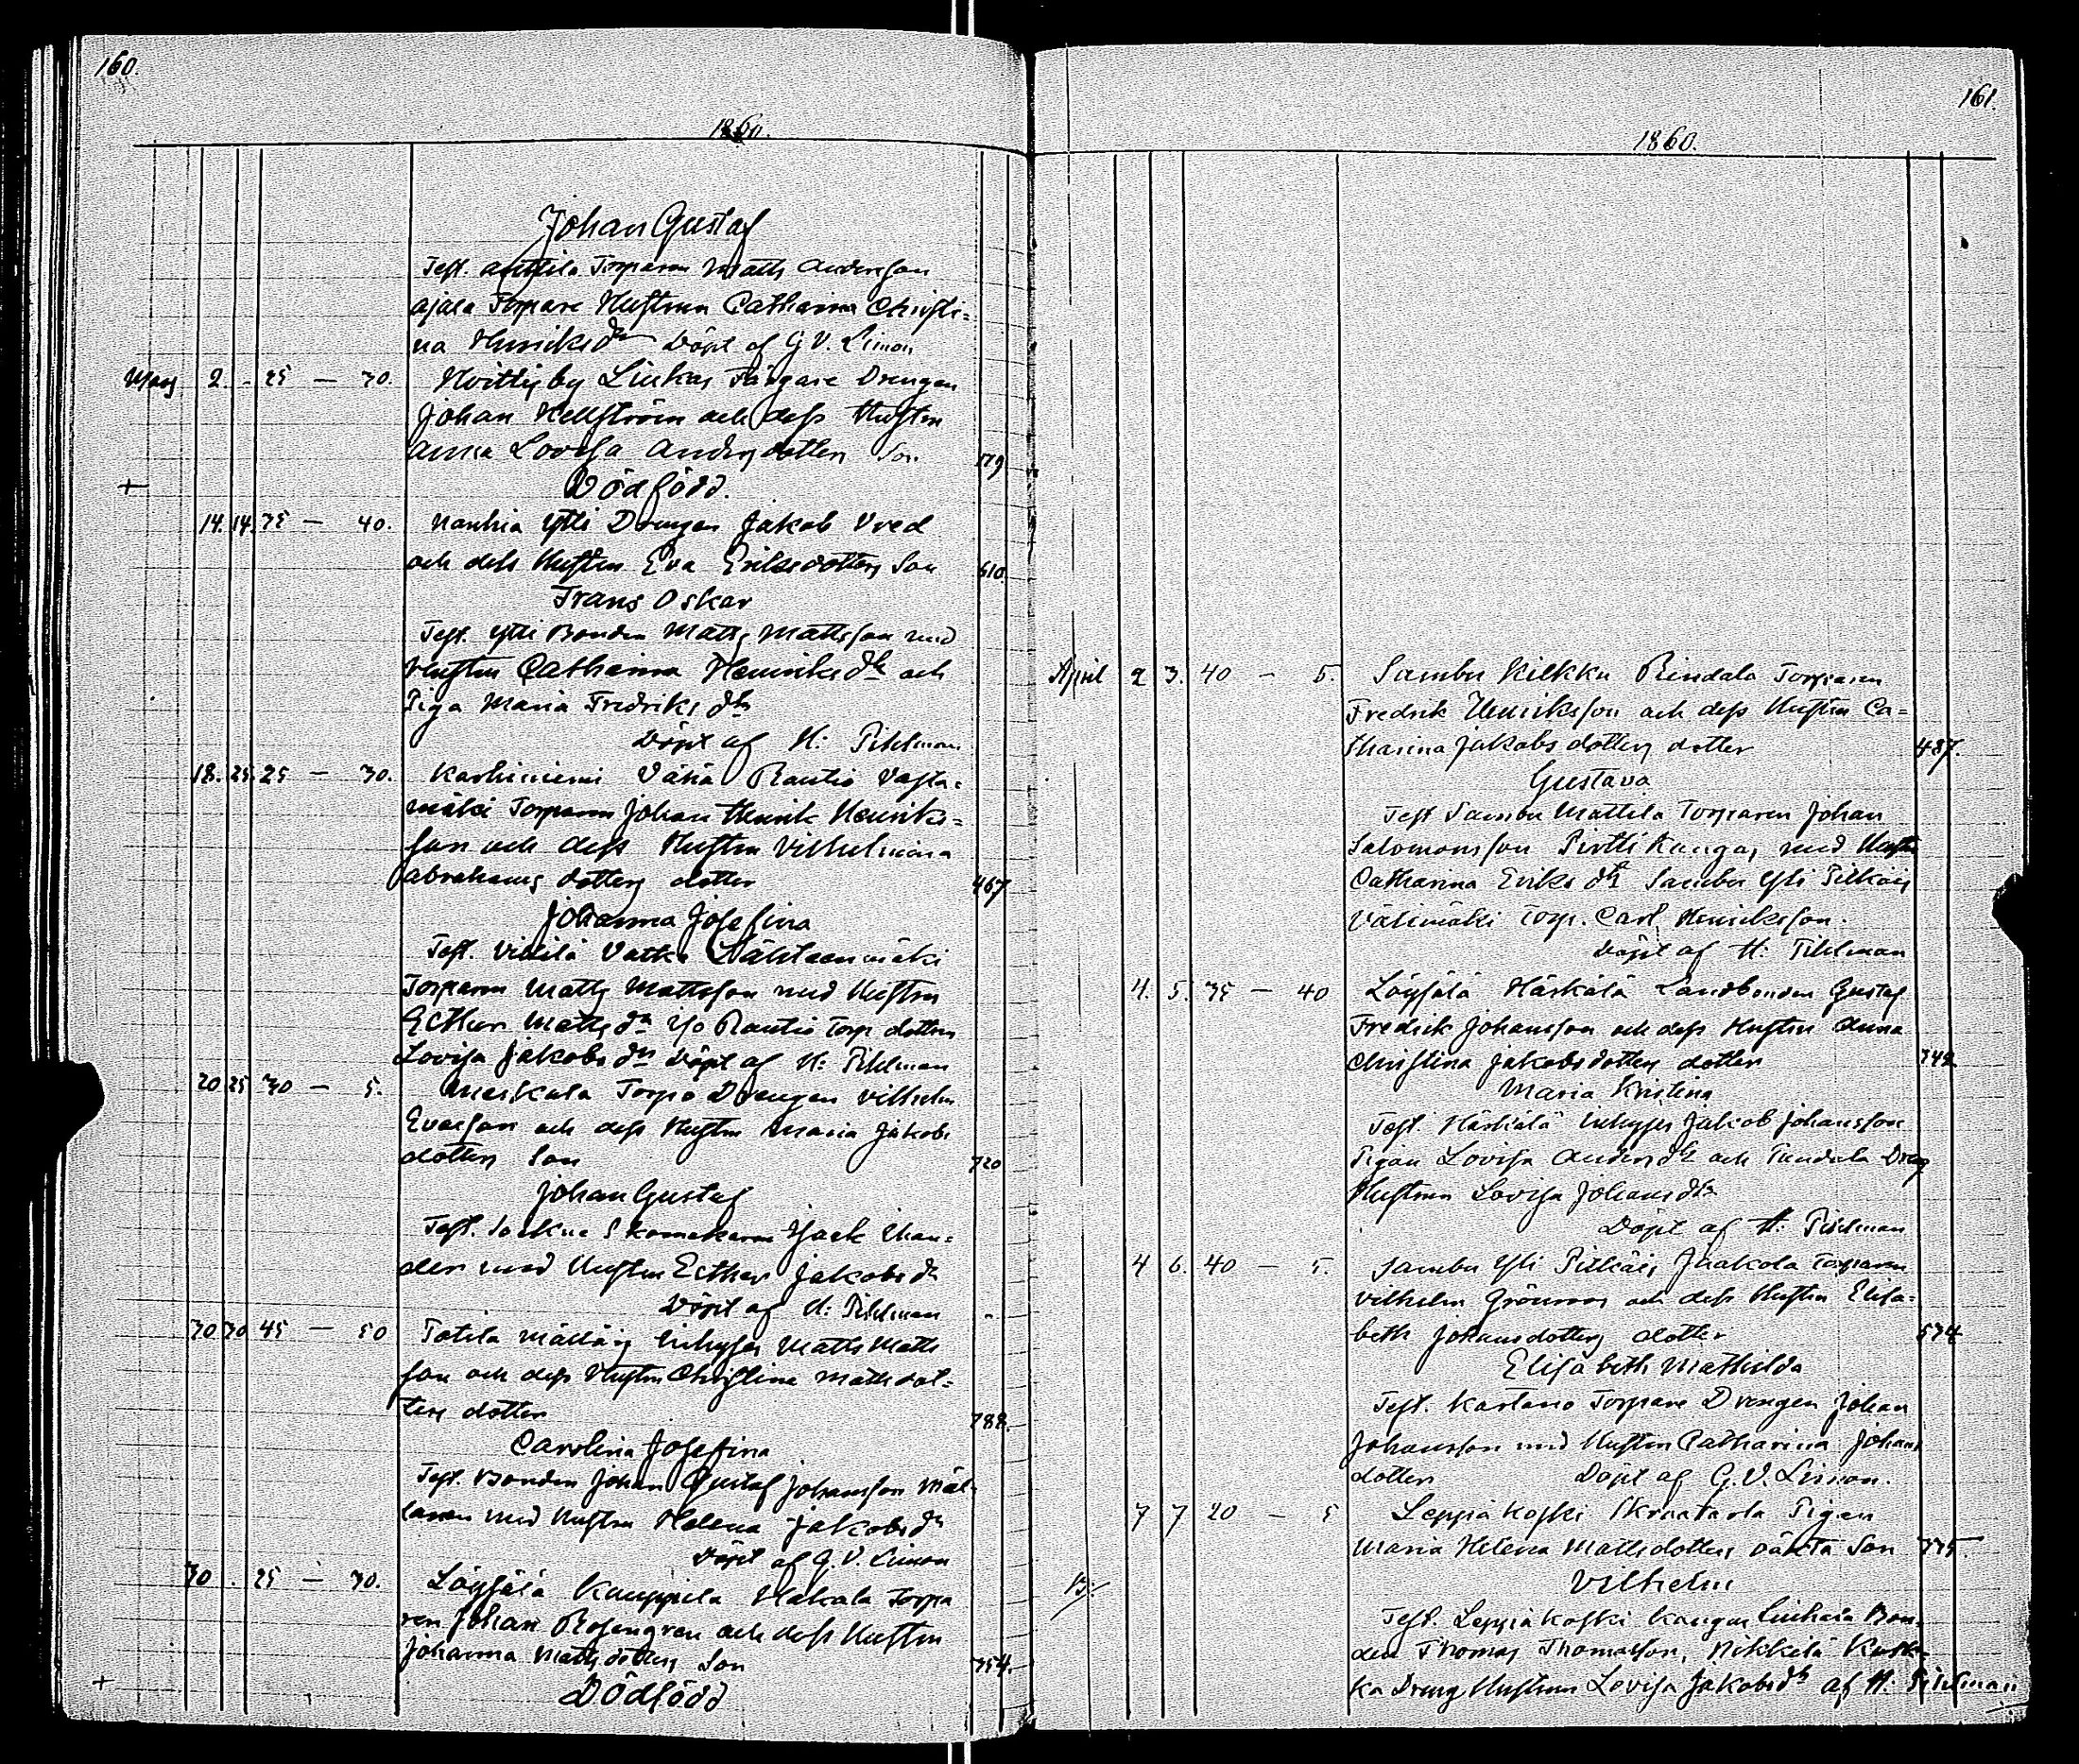 160.
1860.
Johan Gustaf
Test. Anttila Torparen Matts Andersson
Ajala Torpare Hustrun Catharina Christi=
na Henriksdr Döpt af G V. Limon
Mars 2. - 25 — 30. Hvittis by Liukas Färgare Drengen
Johan Hellström och dess Hustru
Anna Lovisa Andersdotters Son 579
+ Dödfödd.
14. 14. 35 — 40. Nanhia Ylli Drengen Jakob Vred
och dess Hustru Eva Eriksdotters Son 610.
Frans Oskar
Test. Ylli Bonden Matts Mattsson med
Hustru Catharina Henriksdr och
Piga Maria Fredriksdr
Döpt af H: Pihlman
18. 25. 25 — 30. Karhiniemi Vähä Rautio Vasta=
mäki Torparen Johan Henrik Henriks=
son och dess Hustru Vilhelmina
Abrahams dotters dotter 467
Johanna Josefina
Test. Vatka Lähteenmäki
Torparen Matts Mattsson med Hustru
Ecther Matts dr Rautio Torp. dottern
Lovisa Jakobs dr Döpt af H: Pihlman
20 25 30 — 5. Meskala Torpo Drengen Vilhelm
Evasson och dess Hustru Maria Jakobs
dotters Son 720
Johan Gustaf
Test. Skomakaren Isack
med Hustru Ecther Jakobs dr
Döpt af H: Pihlman
30 30 45 — 50 Totila Mällärs Inhyses Matts Matts
son och dess Hustru Christina Matts dot=
ters dotter 788.
Carolina Josefina
Test. Bonden Johan Gustaf Johansson
med Hustru Helena Jakobs dr
Döpt af G. V. Limon
30 . 25 — 30. Löysälä Kauppila Hakala Torpa
ren Johan Rosengren och dess Hustru
Johanna Matts dotters Son 754.
+ Dödfödd
161.
1860.
April 2 3. 40 — 5. Sambu Kilkku Rindala Torparen
Fredrik Henriksson och dess Hustru Ca=
tharina Jakobs dotters dotter 487.
Gustava
Test Sambu Mattila Torparen Johan
Salomonsson Pirttikangas med Hustru
Catharina Eriks dr Sambu Yli Pitkäis
Välimäki Torp. Carl Henriksson.
Döpt af H: Pihlman
4. 5. 35 — 40 Löysälä Härkälä Landbonden Gustaf
Fredrik Johansson och dess Hustru Anna
Christina Jakobs dotters dotter 742
Maria Kristina
Test. Härkälä Inhyses Jakob Johansson
Pigan Lovisa Anders dr och Tundala Dreng
Hustrun Lovisa Johans dr
Döpt af H: Pihlman
4 6. 40 — 5. Sambu Yli Pitkäis Jaakola Torparen
Vilhelm Grönroos och dess Hustru Elisa=
beth Johansdotters dotter 574
Elisabeth Mathilda
Test. Kartano Torpare Drengen Johan
Johansson med Hustru Catharina Johans
dotter Döpt af G. V. Limon.
7 7 20 — 5 Leppäkoski Skraatarla Pigan
Maria Helena Mattsdotters oäkta Son 775.
Vilhelm
Test. Leppäkoski Kangas Bon=
den Thomas Thomasson, Nikkilä
ka Dreng Hustrun Lovisa Jakobs dr af H: Pihlman